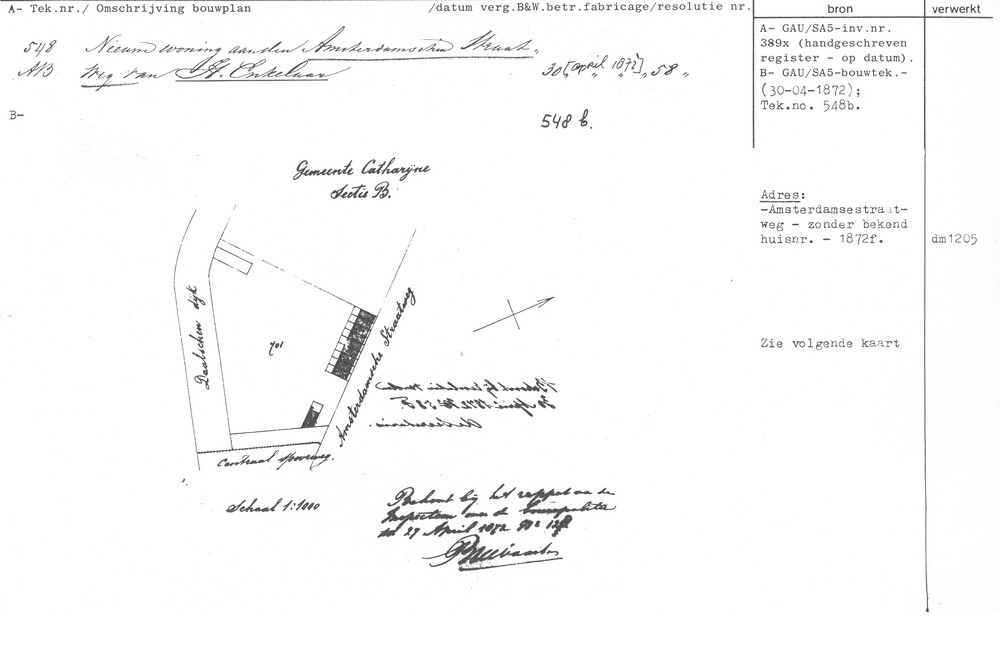 A- Tek.nr./ Omschrijving bouwplan /datum verg.B&W.betr.fabricage/resolutie nr. bron verwerkt
548 Nieuwe woning aan den Amsterdamschen Straat„
AB weg van H. Enkelaar 30 [april 1872] „ 58 „
B-
548 b.
A- GAU/SA5-inv.nr.
389x (handgeschreven
register - op datum).
B- GAU/SA5-bouwtek.-
(30-04-1872);
Tek.no. 548b.
Gemeente Catharijne
Sectie B.
Adres:
-Amsterdamsestraat-
weg - zonder bekend
huisnr. - 1872f. dm1205
Zie volgende kaart
Daalschen dijk
701
Amsterdamsche Straatweg
Centraal spoorweg.
Schaal 1:1000
Behoort bij het rapport van de
Inspecteur van de bouwpolitie
27 April 1872